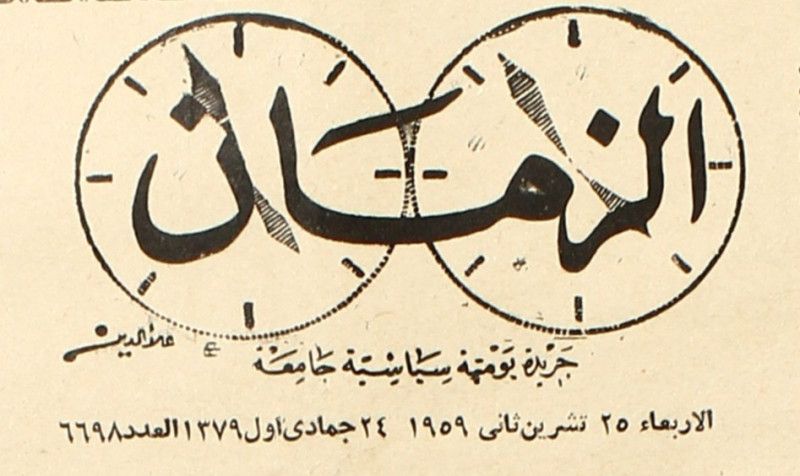 الزمان
علاء الدين
جريدة يومية سياسية جامعة
الاربعاء ٢٥ تشرين ثانى ١٩٥٩ ٢٤ جمادى اول ١٣٧٩ العدد ٦٦٩٨